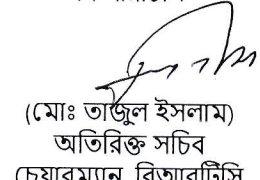 (মোঃ তাজুল ইসলাম)
অতিরিক্ত সচিব
চেয়ারম্যান, বিআরটিসি